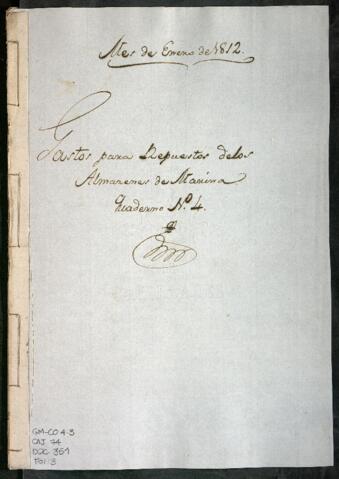 Mes de Enero de 1812.
Gastos para Repuestos delos
Almazenes de Marina
Quaderno N.º 4.
GM-CO 4-3
CAJ 74
DOC 361
FOL 3